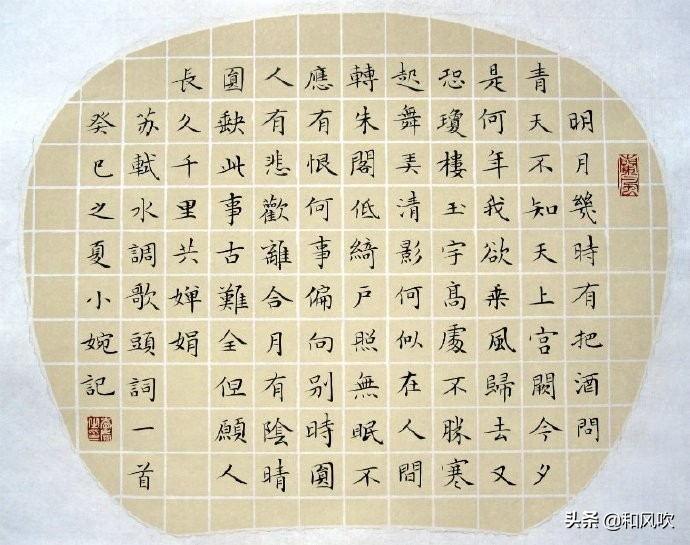 明月幾時有把酒問
青天不知天上宮闕今夕
是何年我欲乘風歸去又
恐瓊樓玉宇髙處不勝寒
起舞弄清影何似在人間
轉朱閣低綺戶照無眠不
應有恨何事偏向別時圓
人有悲歡離合月有陰晴
圓缺此事古難全但願人
長久千里共嬋娟
苏軾水調歌頭詞一首
癸巳之夏小婉記
头条 @和风吹